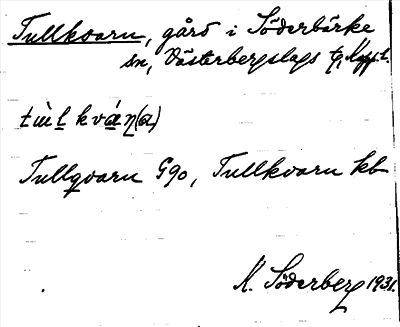 Tullkvarn, gård i Söderbärke
sn, Västerbergslags tg, Kopp. l.
tùl̠ kván̠(a)
Tullqvarn G90, Tullkvarn kb
K. Söderberg 1931.